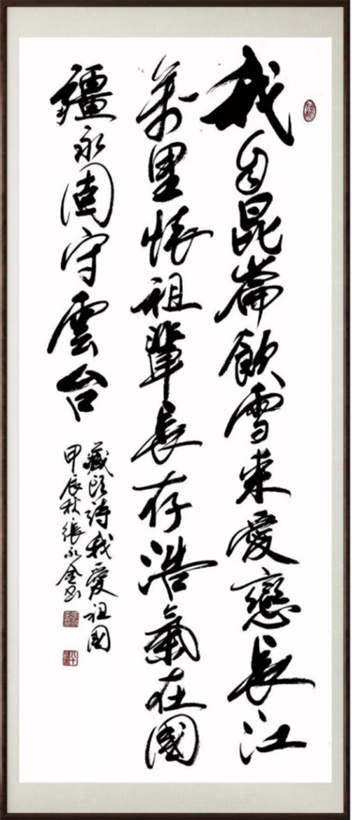 我自昆崙飲雪來愛戀長江
萬里懷祖輩長存浩氣在國
疆永固守雲台
藏頭詩我愛祖國
甲辰秋張永金书